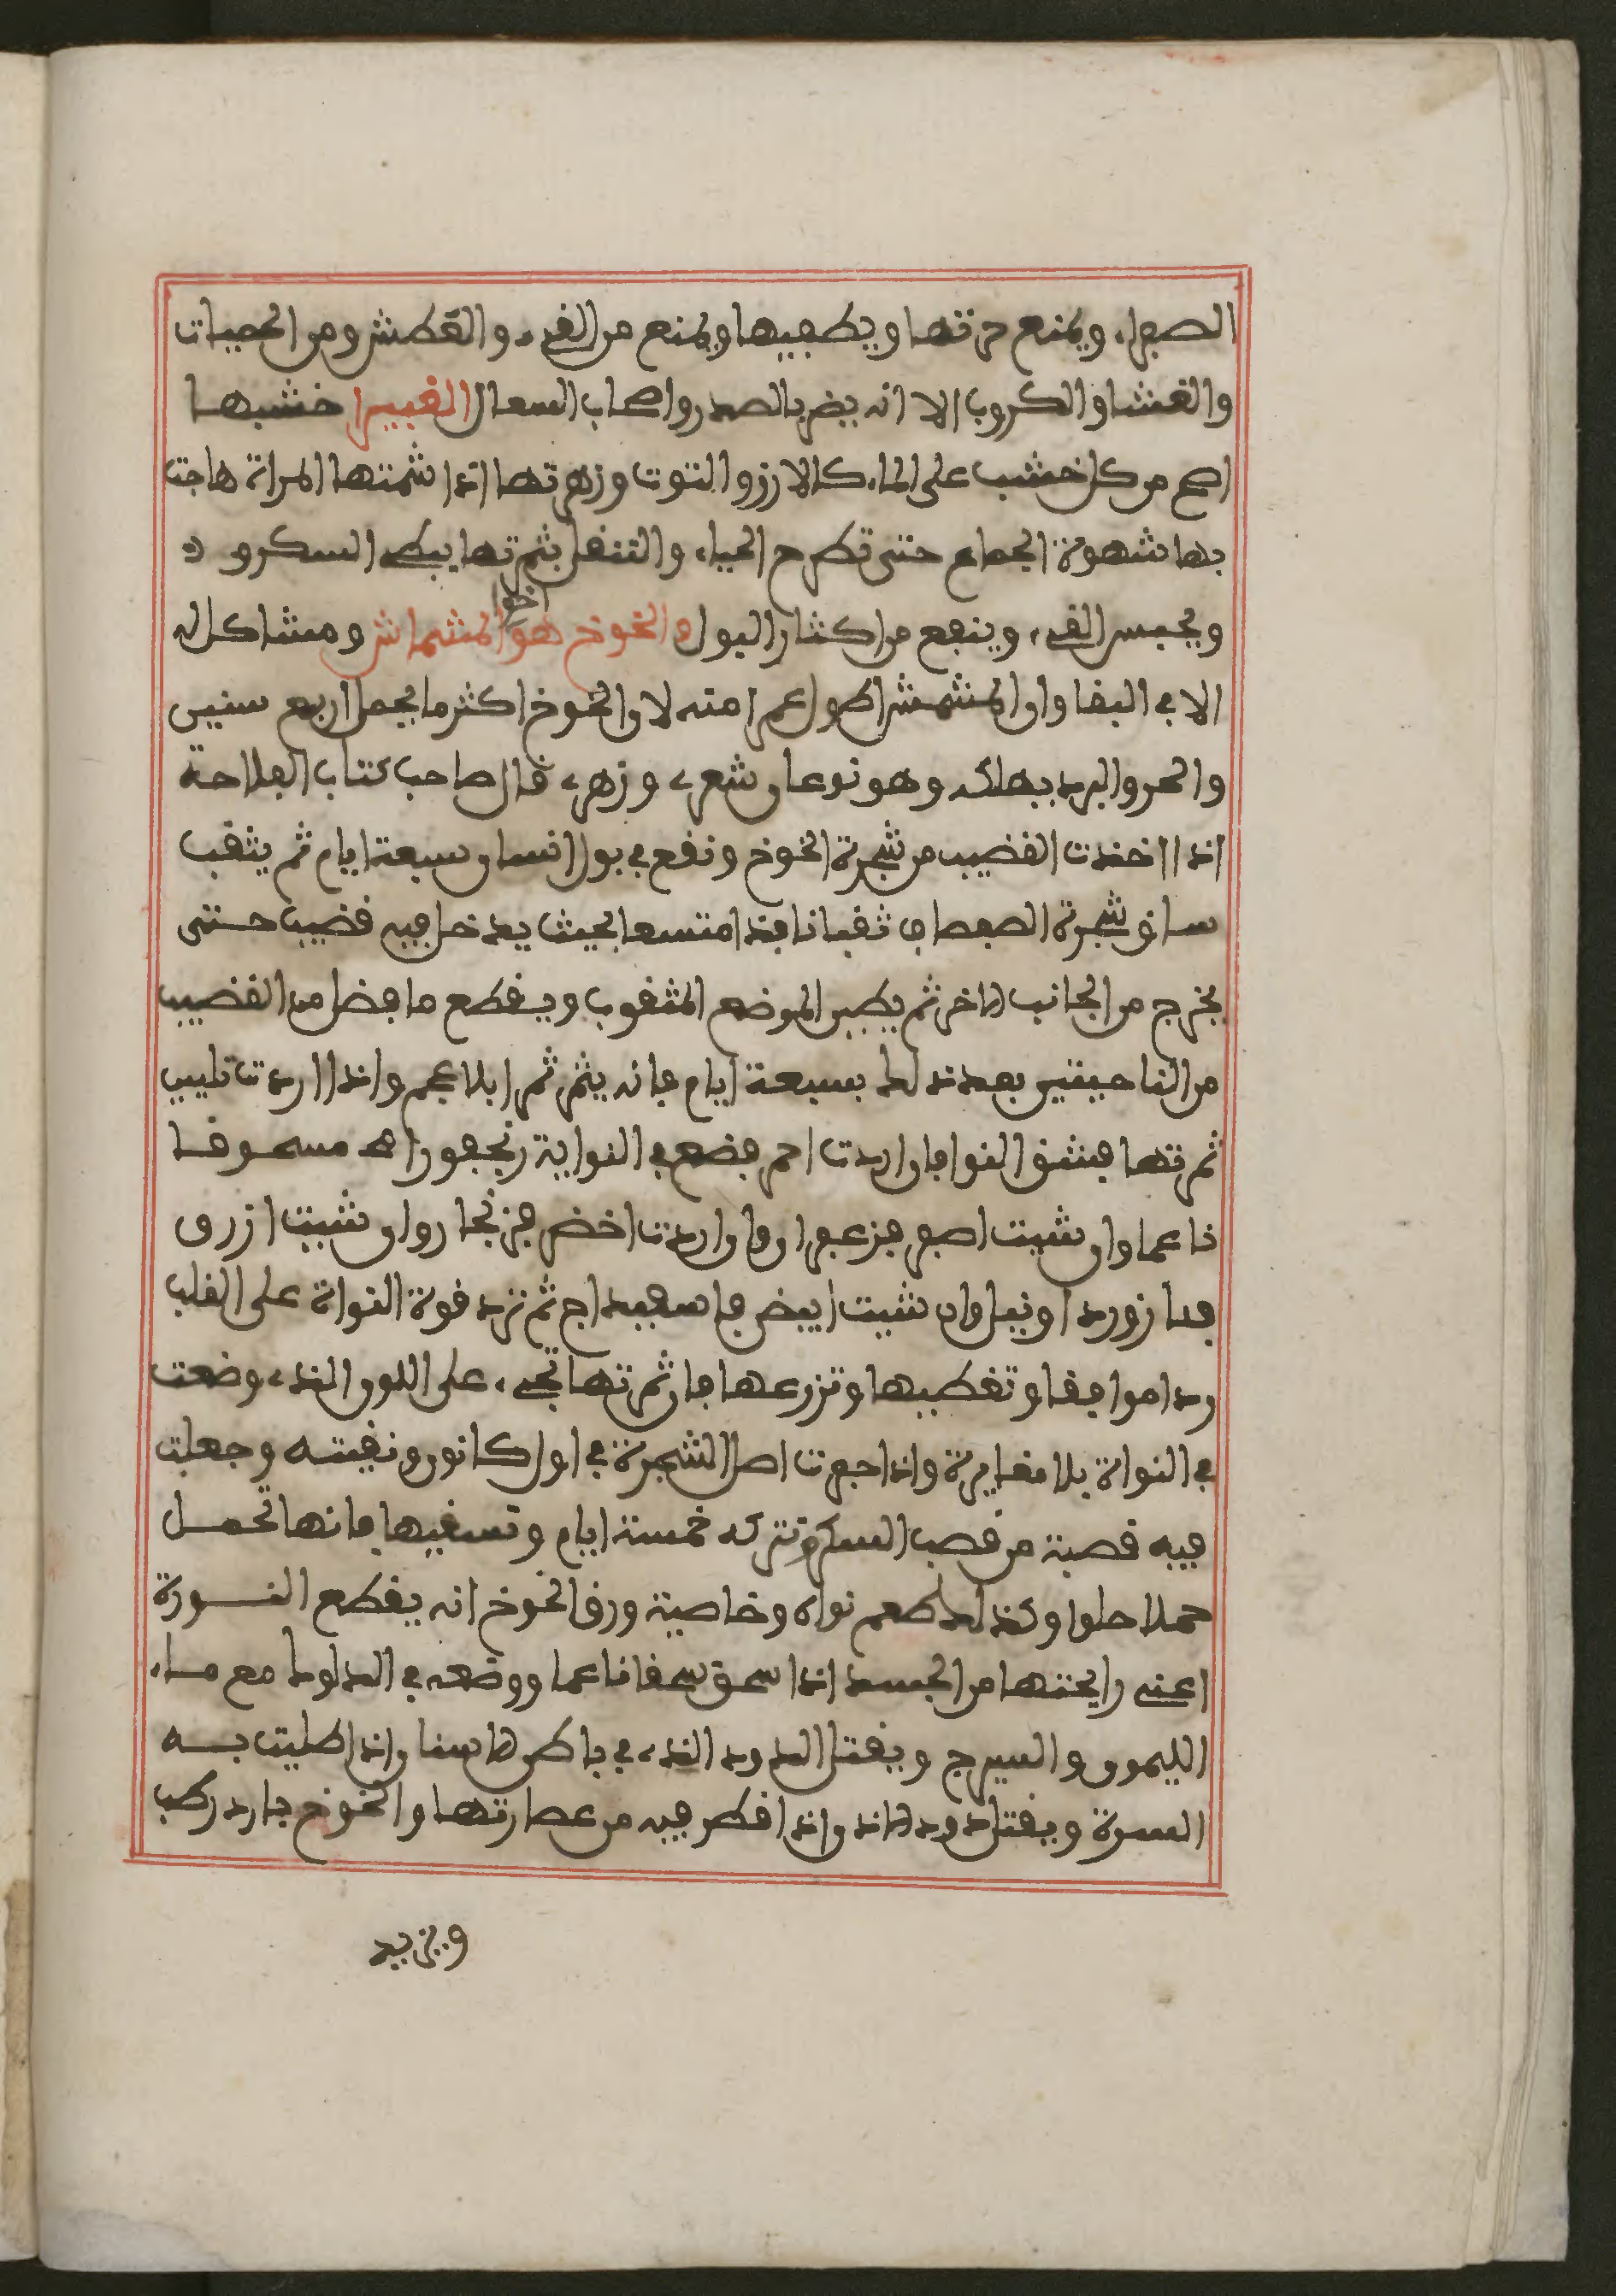 الصفراء ويمنع حرقتها ويطفيها ويمنع من القيء والعطش ومن الحميات
والغشا والكروب الا انه يضر بالصدر واصحاب السعال الغبيرا خشبها
اصح من كل خشب على الماء كالارز والتوت وزهرتها اذا شمتها المراة هاجت
بها شهوة الجماع حتى تطرح الحياء والتنقل بثمرتها يبطي السكر و
ويحبس القيء وينفع من اكثار البول والخوخ هو اخو المشماش ومشاكل له
الا في البقا وان المشمش اطول عمرا منه لان الخوخ اكثر ما يحمل اربع سنين
والحر والبرد يهلكه وهو نوعان شعري وزهري قال صاحب كتاب الفلاحة
اذا اخذت القضيب من شجرة الخوخ ونقع في بول انسان سبعة ايام ثم يثقب
ساق شجرة الصفصاف ثقبا نافذا متسعا بحيث يدخل فيه قضيب حتى
يخرج من الجانب الاخر ثم يطين الموضع المثقوب ويقطع ما فضل من القضيب
من الناحيتين بعد ذلك بسبعة ايام فانه يثمر ثمرا بلا عجم واذا اردت تليين
ثمرتها فشق النوا فان اردت احمر فضع في النواية زنجفورا مسحوقا
ناعما وان شيت اصفر فزعفران وان اردت اخضر فزنجار وان شيت ازرق
فلازورد او نيل وان شيت ابيض فاسفيداج ثم ترد قوة النواة على القلب
ردا موافقا وتغطيها وتزرعها فان ثمرتها تجيء على اللون الذي وضعت
في النواة بلا مغايرة واذا حفرت اصل الشجرة في اول كانون ونقيته وجعلت
فيه قصبة من قصب السكر وتتركه خمسة ايام وتسقيها فانها تحمل
حملا حلوا وكذلك طعم نواه وخاصية ورق الخوخ انه يقطع النورة
اعني رايحتها من الجسد اذا سحق سحقا ناعما ووضعه في الدلوك مع ماء
الليمون والسيرج ويقتل الدود الذي في باطن الانسان اذا طليت به
السرة ويقتل دود الاذن اذا قطر فيه من عصارتها والخوخ بارد رطب
ويزيد